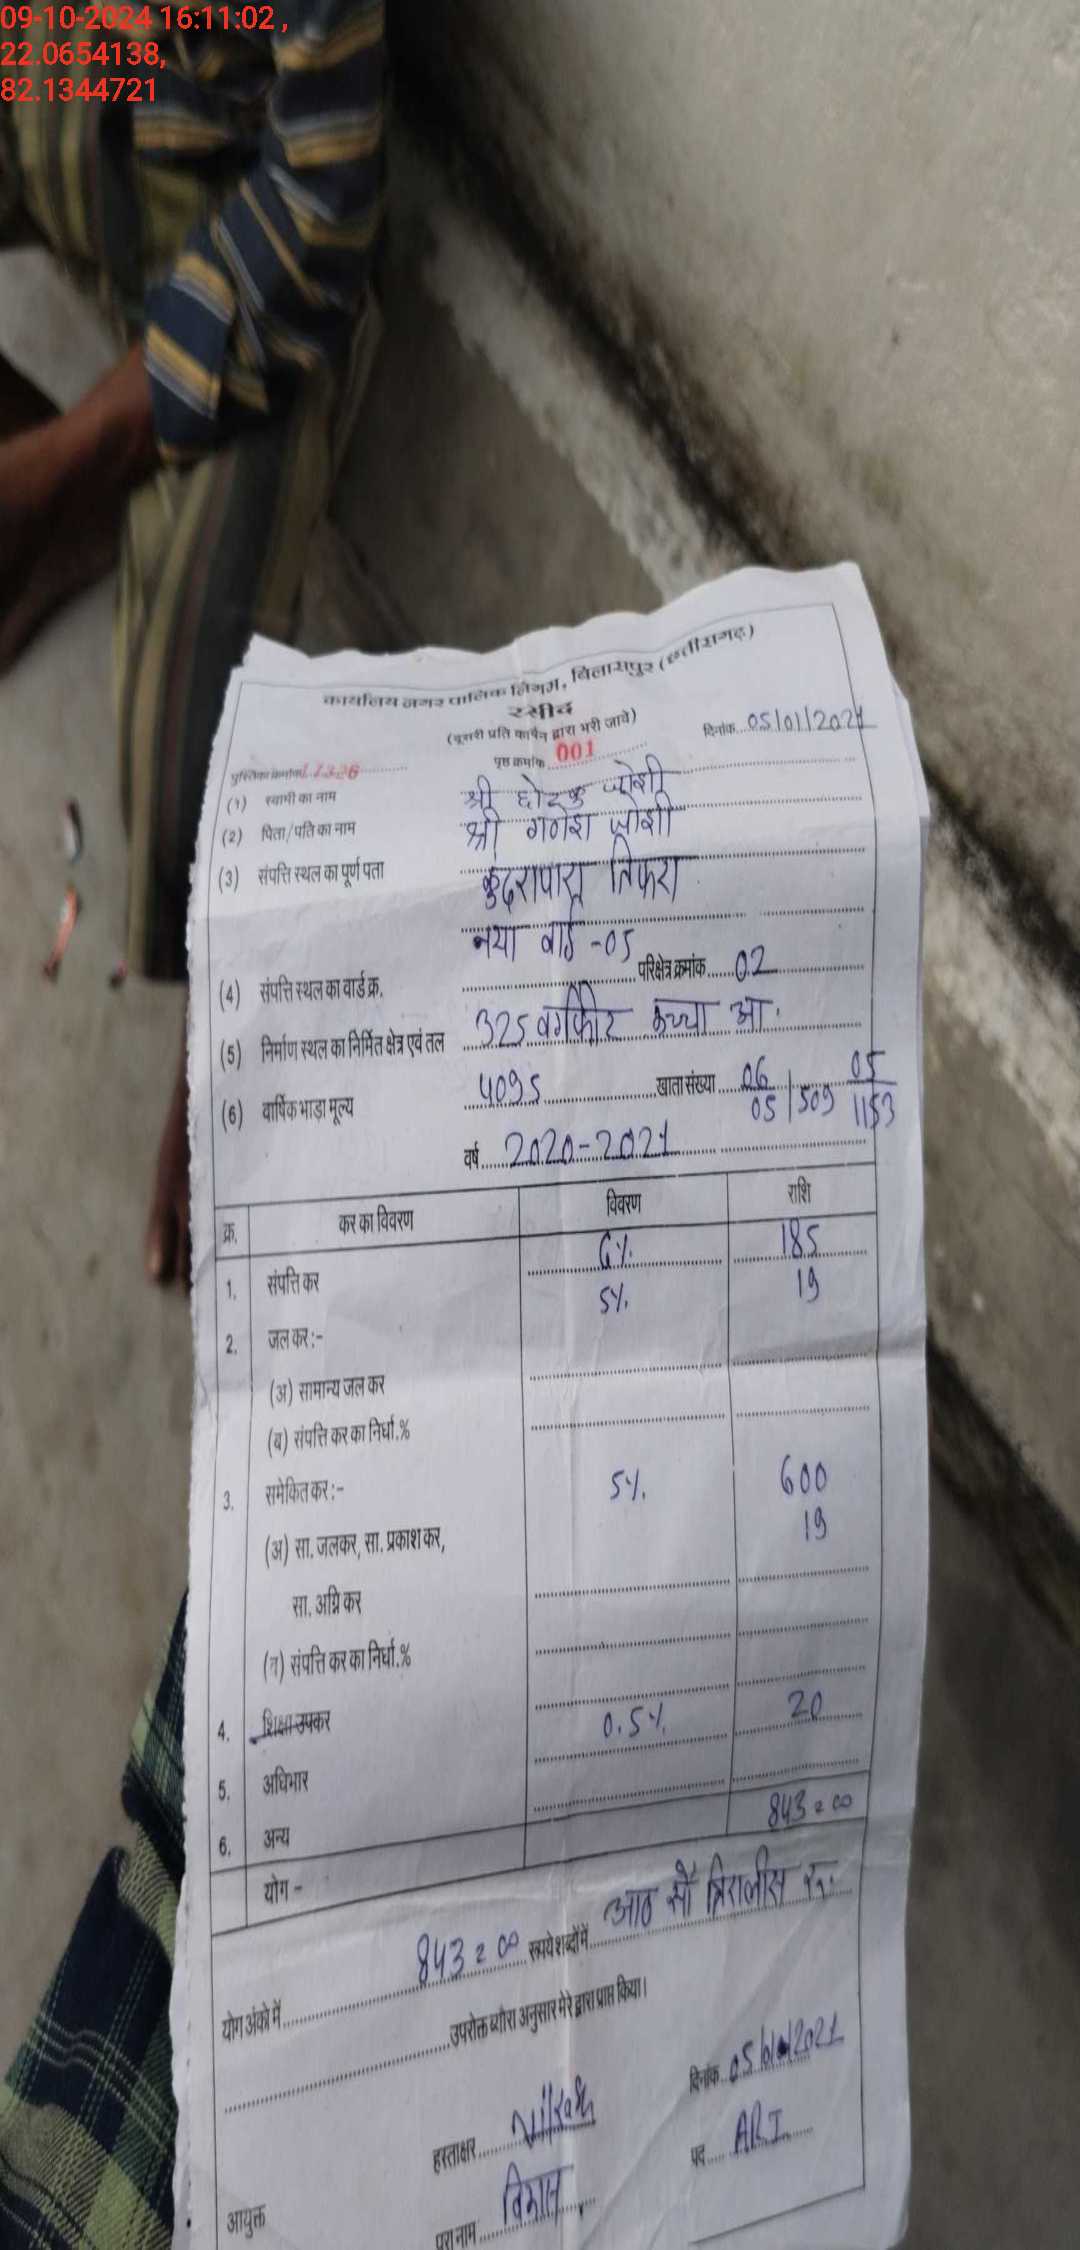 09-10-2024 16:11:02 ,
22.0654138,
82.1344721
कार्यालय नगर पालिक निगम, बिलासपुर (छत्तीसगढ़)
रसीद
(दूसरी प्रति कार्बन द्वारा भरी जावे)
पुस्तिका क्रमांक पृष्ठ क्रमांक 001 दिनांक 05/01/2021
(1) स्वामी का नाम श्री छोटकू जोशी
(2) पिता/पति का नाम श्री गणेश जोशी
(3) संपत्ति स्थल का पूर्ण पता कुंदरापारा तिफरा
नया वार्ड -05
(4) संपत्ति स्थल का वार्ड क्र. परिक्षेत्र क्रमांक 02
(5) निर्माण स्थल का निर्मित क्षेत्र एवं तल 325 वर्गफीट कच्चा आ.
(6) वार्षिक भाड़ा मूल्य 4095 खाता संख्या 06/05 / 509 05/1153
वर्ष 2020-2021
क्र. कर का विवरण विवरण राशि
1. संपत्ति कर 6% 185
5% 19
2. जल कर :-
(अ) सामान्य जल कर
(ब) संपत्ति कर का निर्धा.%
3. समेकित कर :- 5% 600
(अ) सा. जलकर, सा. प्रकाश कर, 19
सा. अग्नि कर
(ब) संपत्ति कर का निर्धा.%
4. शिक्षा उपकर 0.5% 20
5. अधिभार
6. अन्य
योग - 843=00
योग अंको में 843=00 रूपये शब्दों में आठ सौ त्रिरालीस रू.
उपरोक्त ब्यौरा अनुसार मेरे द्वारा प्राप्त किया।
दिनांक 05/01/2021
हस्ताक्षर
पद ARI
आयुक्त
पूरा नाम विकास